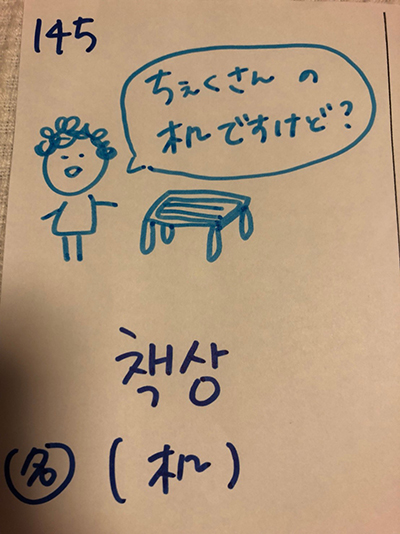 145
ちぇくさん の
机ですけど?
책상
名 (机)